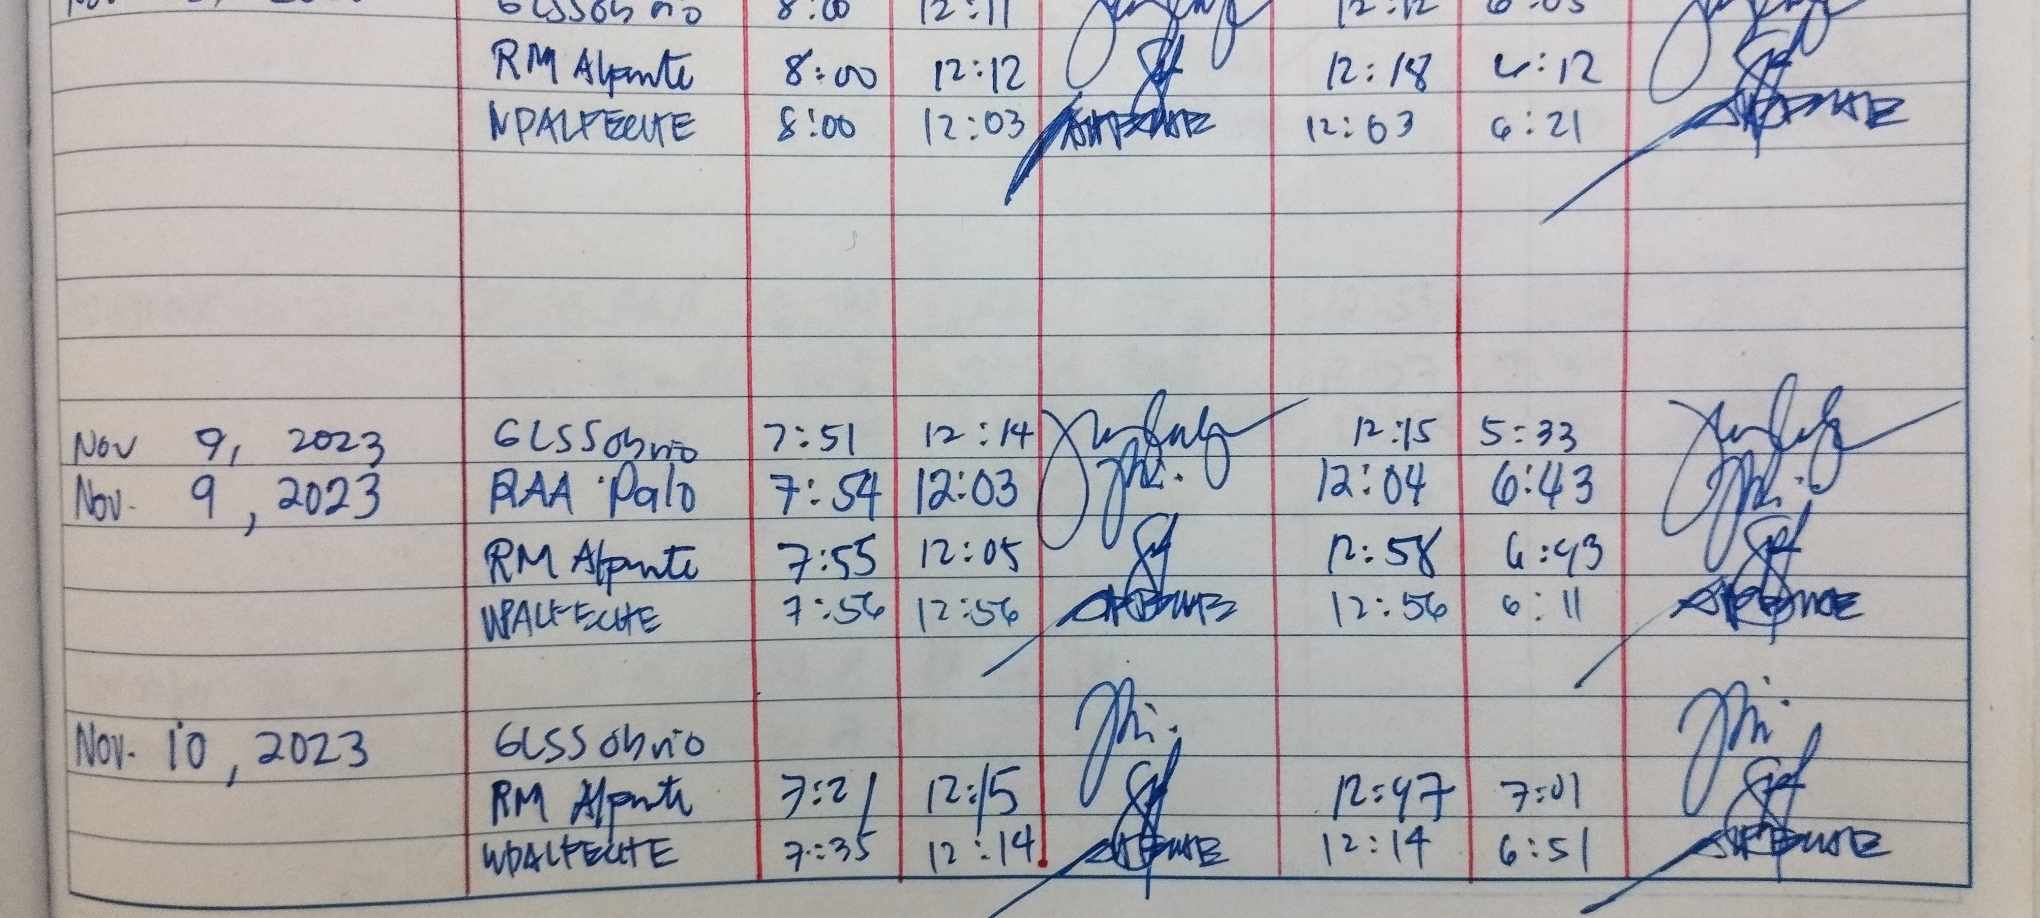 GLSSobrio 8:00 12:11 12:12 6:05
RM Alpante 8:00 12:12 12:18 6:12
NPALFECHE 8:00 12:03 12:03 6:21
Nov 9, 2023 GLSSobrio 7:51 12:14 12:15 5:33
Nov. 9, 2023 RAA Palo 7:54 12:03 12:04 6:43
RM Alpante 7:55 12:05 12:58 6:43
NPALFECHE 7:56 12:56 12:56 6:11
Nov. 10, 2023 GLSSobrio
RM Alpante 7:21 12:15 12:47 7:01
NPALFECHE 7:35 12:14 12:14 6:51